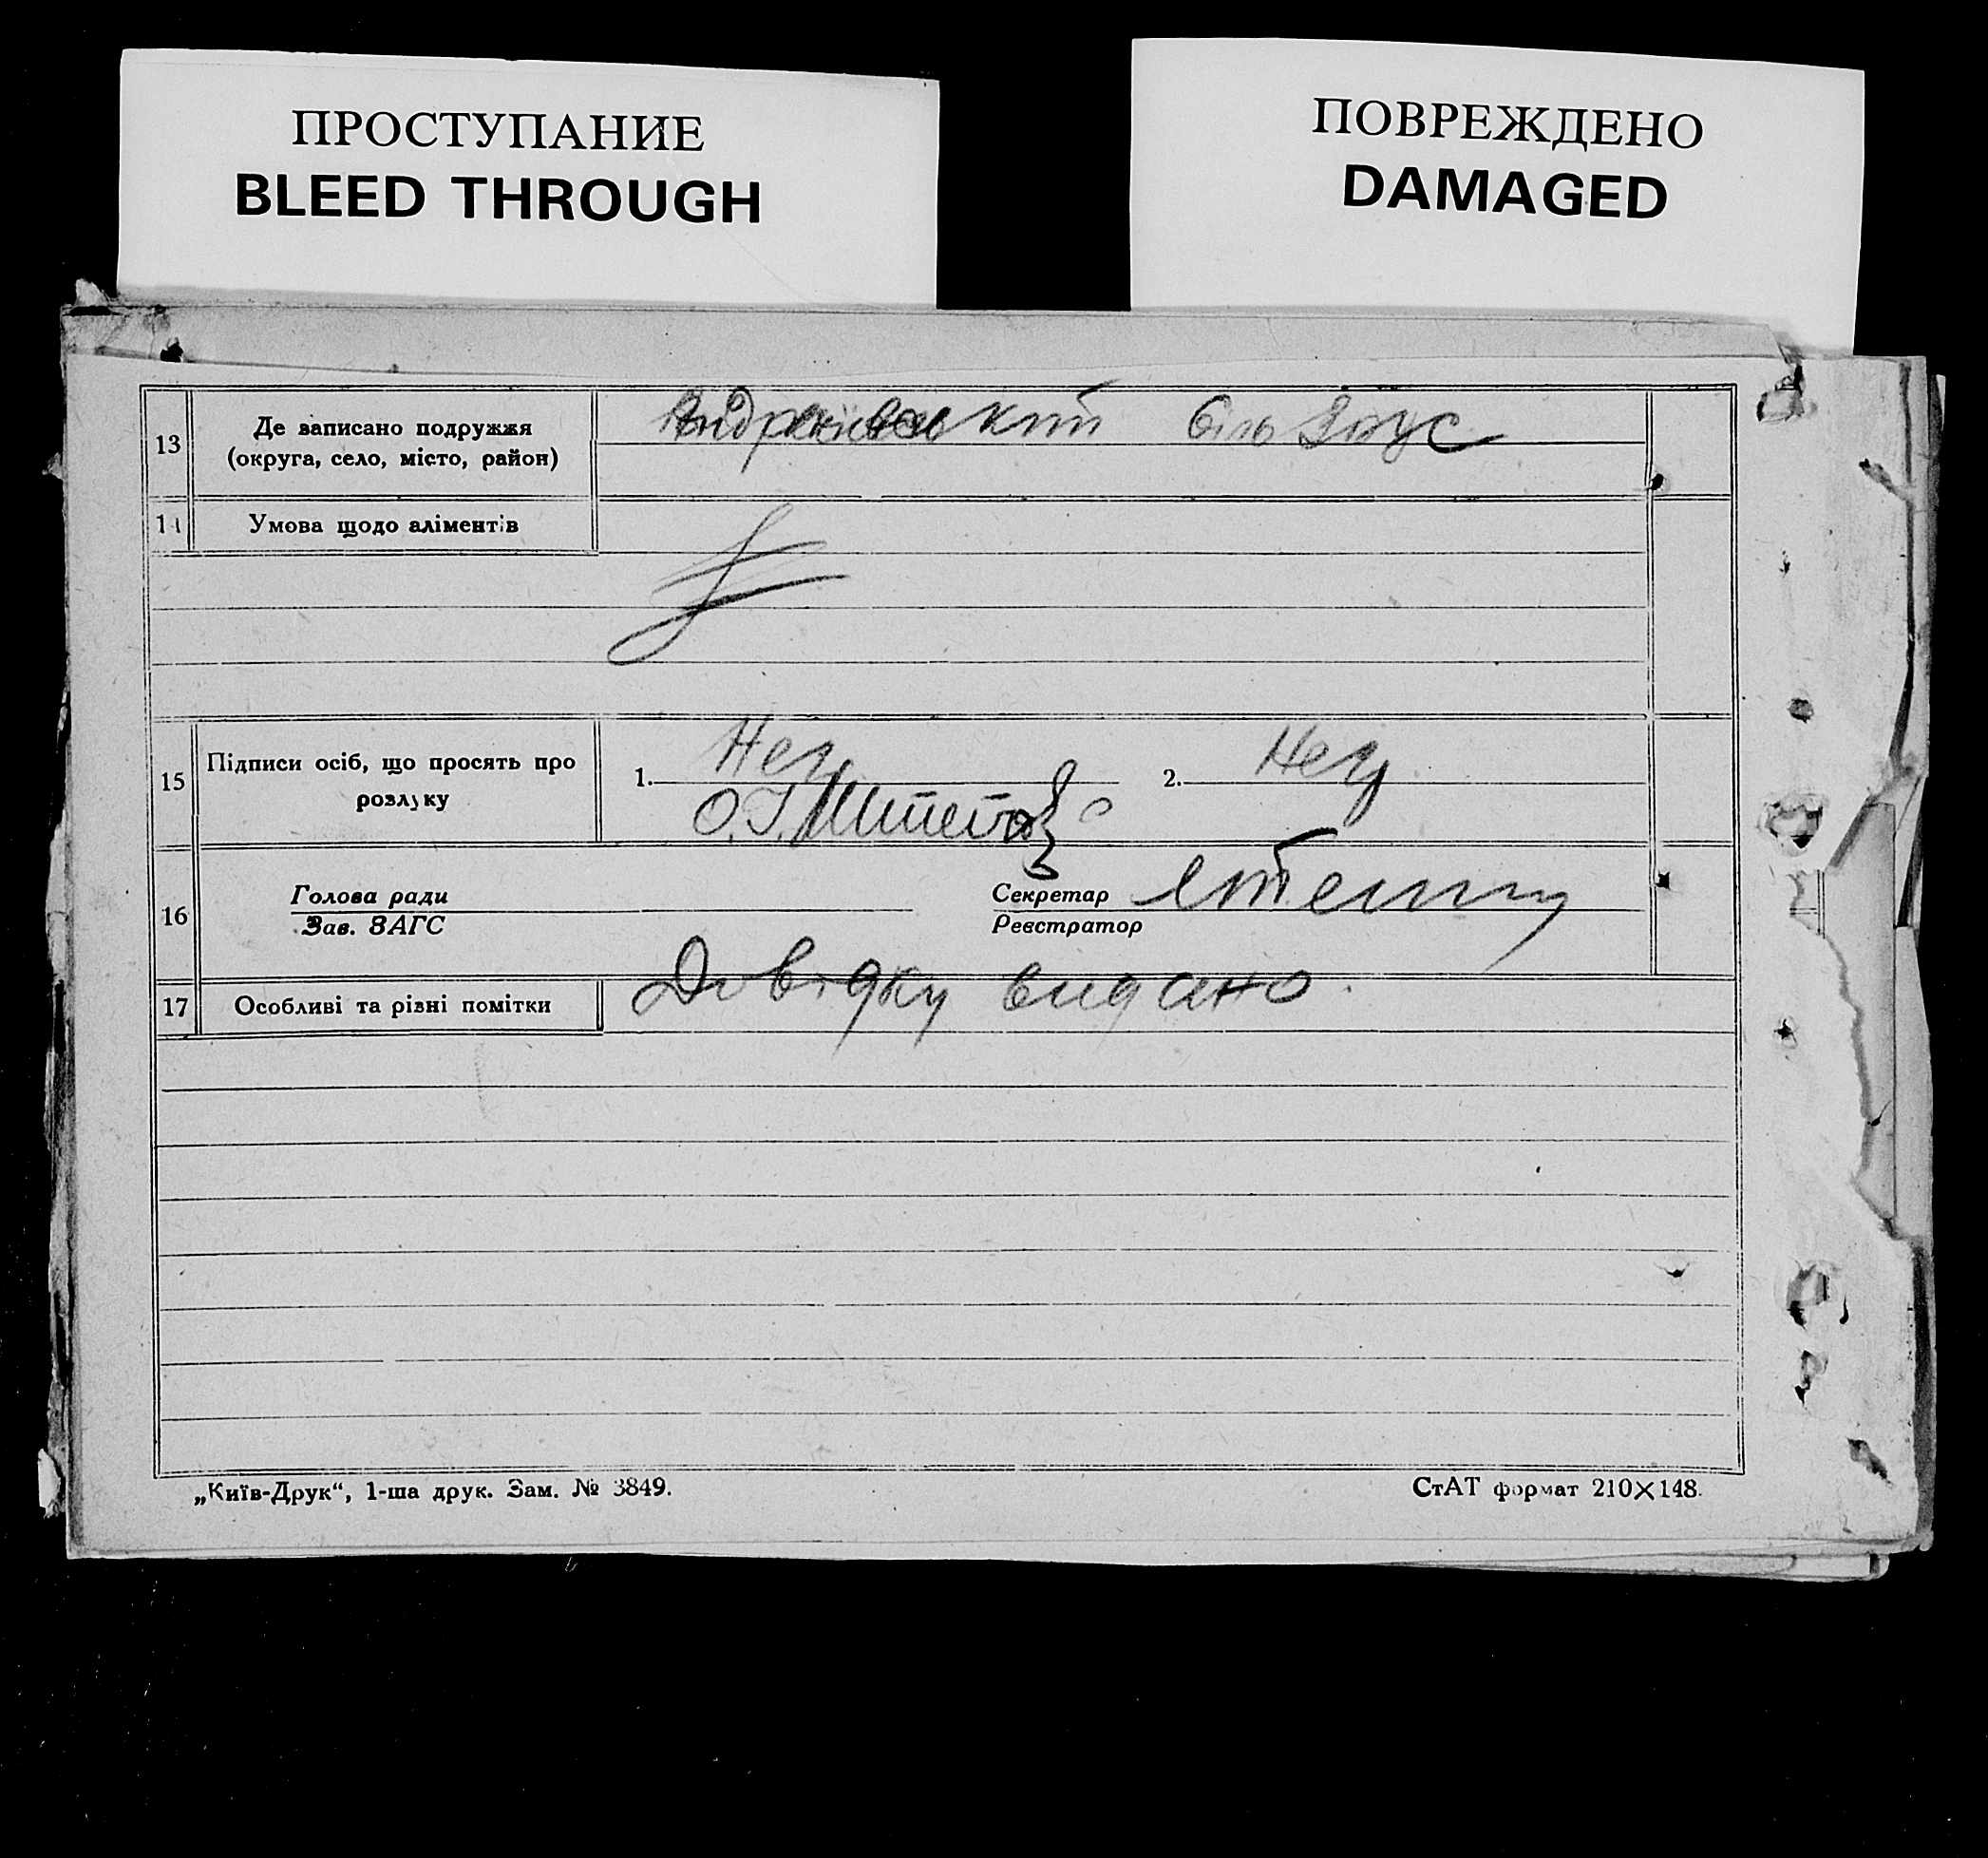 ПРОСТУПАНИЕ
BLEED THROUGH
ПОВРЕЖДЕНО
DAMAGED
13 Де записано подружжя
(округа, село, місто, район)
14 Умова щодо аліментів
15 Підписи осіб, що просять про
розлуку
1. Нец 2. Нец
О.І.
16 Голова ради
Зав. ЗАГС
Секретар
Реєстратор
17 Особливі та різні помітки Довідку видано.
„Київ-Друк“, 1-ша друк. Зам. № 3849.
СтАТ формат 210×148.